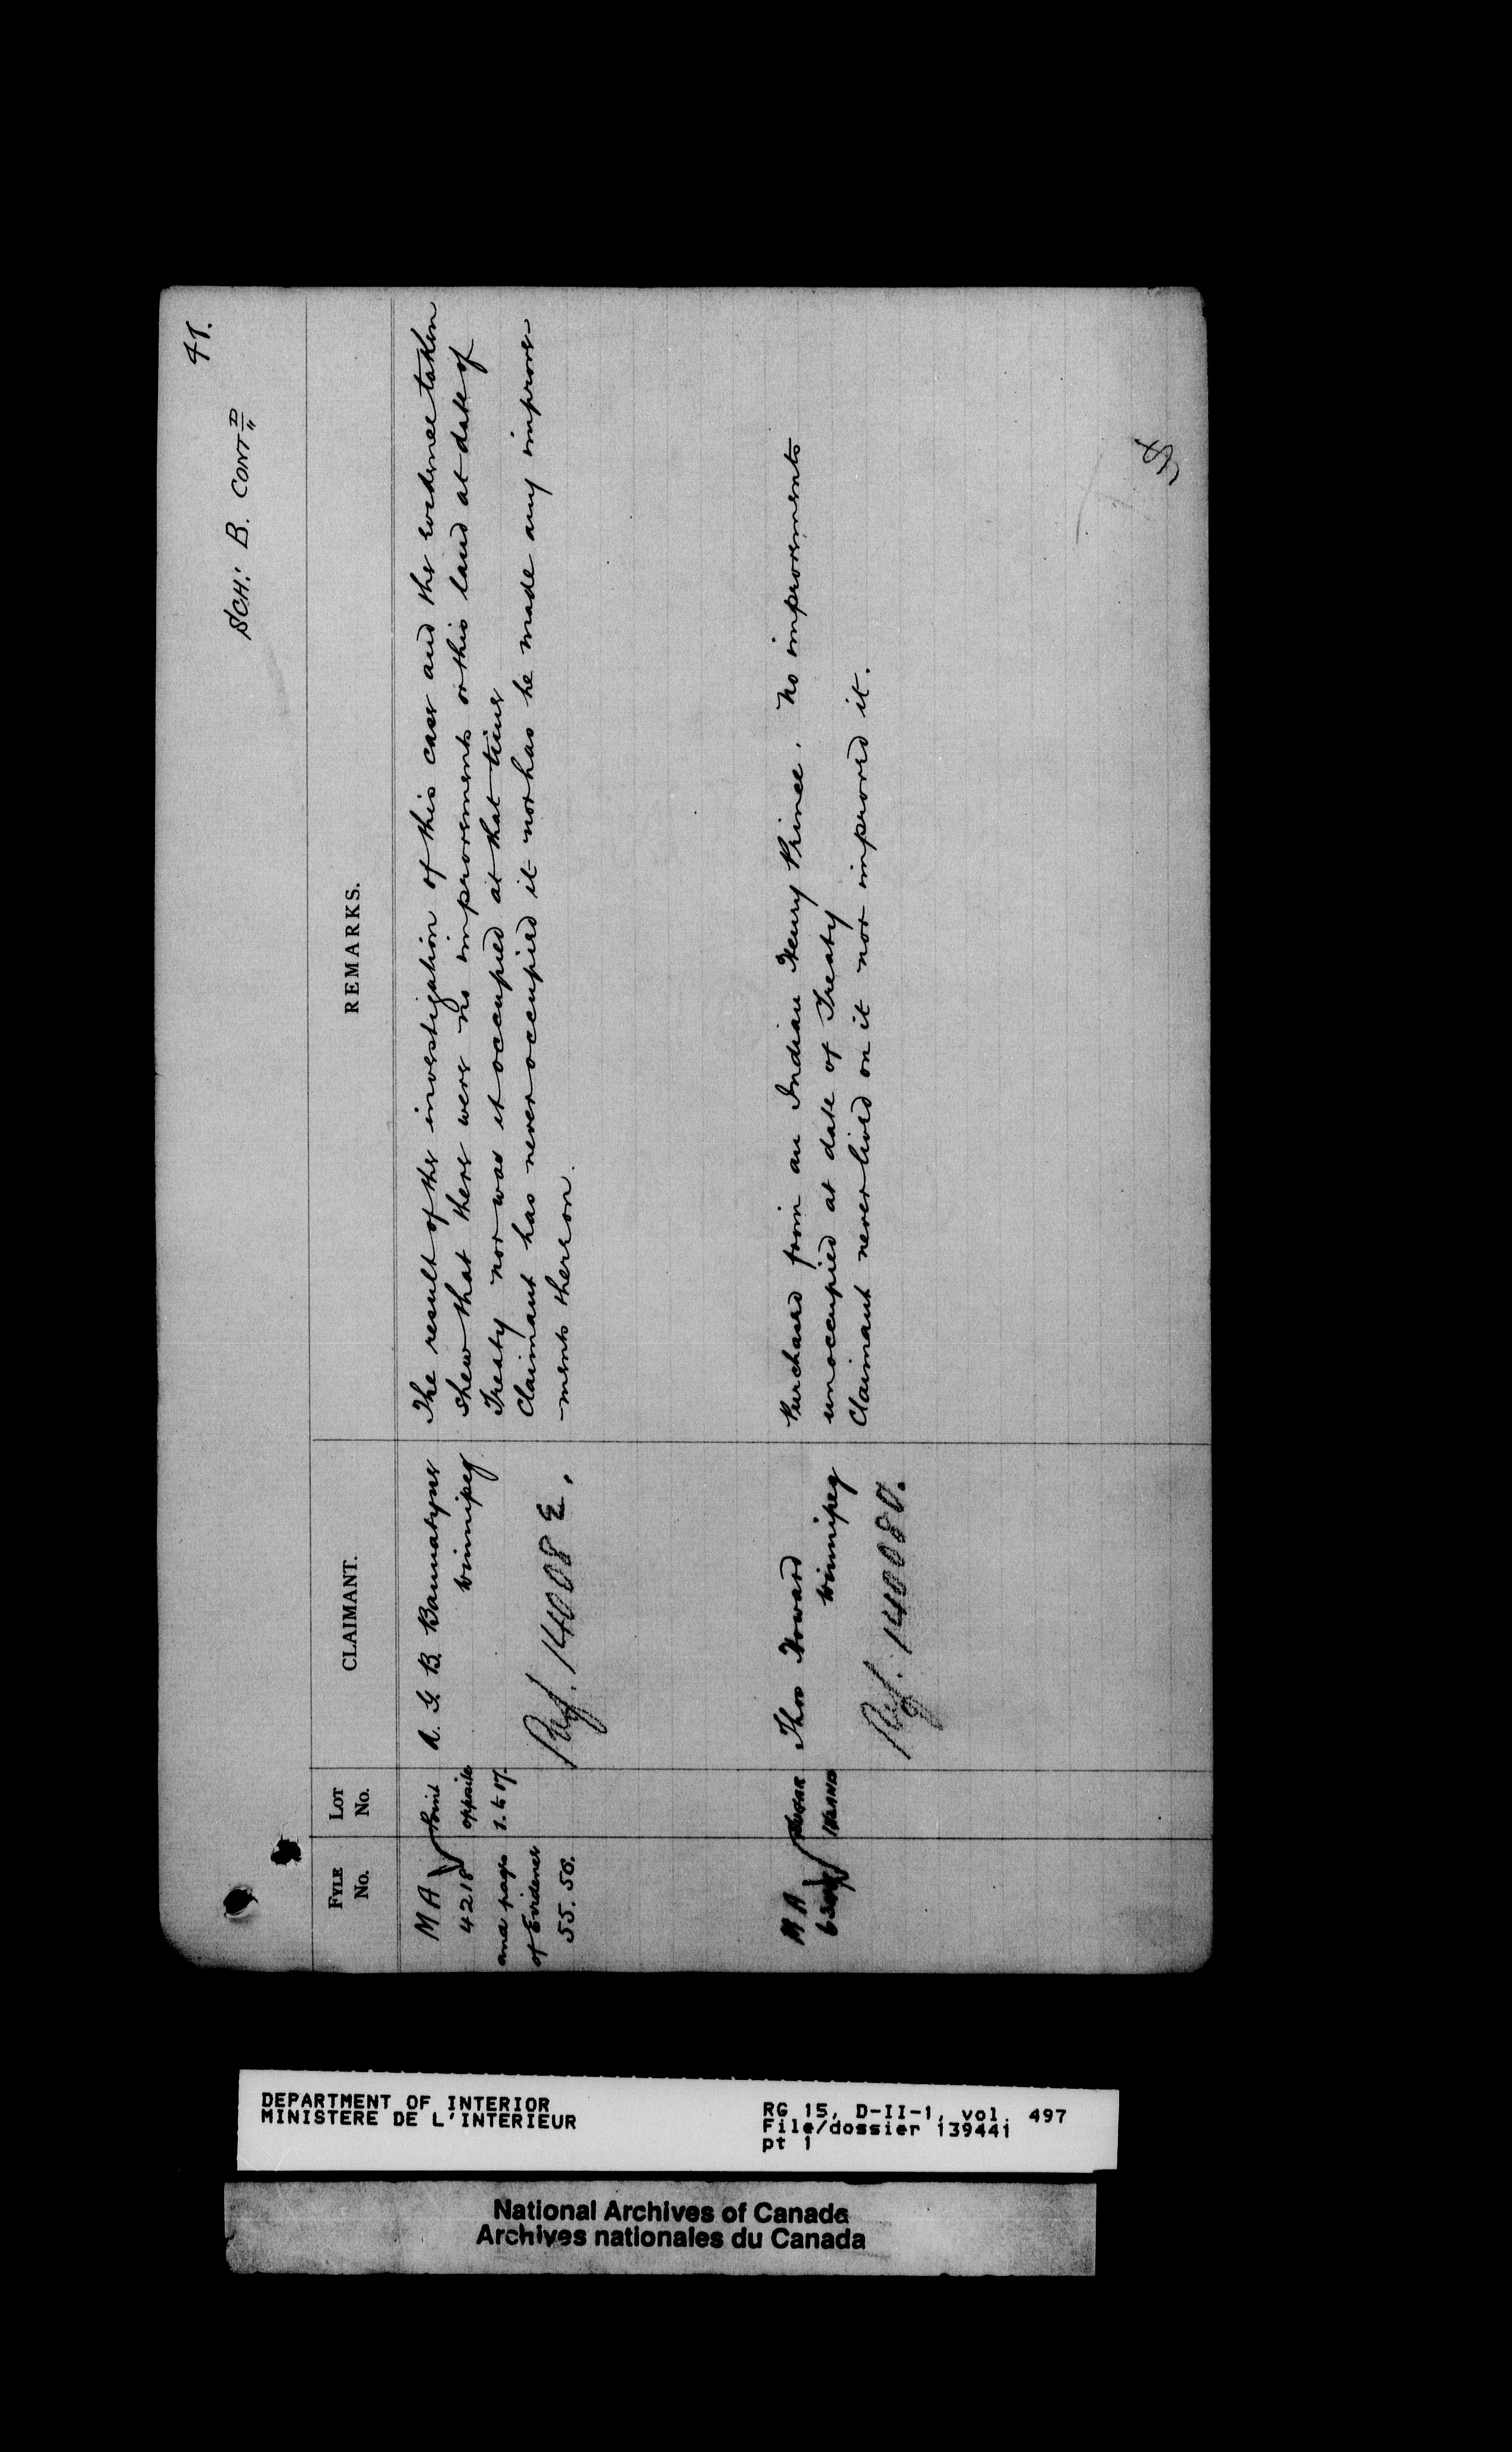 41.
SCH: B. CONT D
FYLE No.
LOT No.
CLAIMANT.
REMARKS.
M A
4218
and pages
of Evidence
55. 56.
Point
opposite
1. to 17.
A. G. B. Bannatyne
Winnipeg
Ref. 14008 E.
The result of the investigation of this case and the evidence taken
shew that there were no improvements on this land at date of
Treaty nor was it occupied at that time
Claimant has never occupied it nor has he made any improve-
-ments thereon.
M A
SUGAR
ISLAND
Thos Howard
Winnipeg
Ref. 140080.
Purchased from an Indian Henry Prince. No improvements
unoccupied at date of Treaty
Claimant never lived on it nor improved it.
DEPARTMENT OF INTERIOR
MINISTERE DE L'INTERIEUR
RG 15, D-II-1, vol. 497
File/dossier 139441
pt 1
National Archives of Canada
Archives nationales du Canada